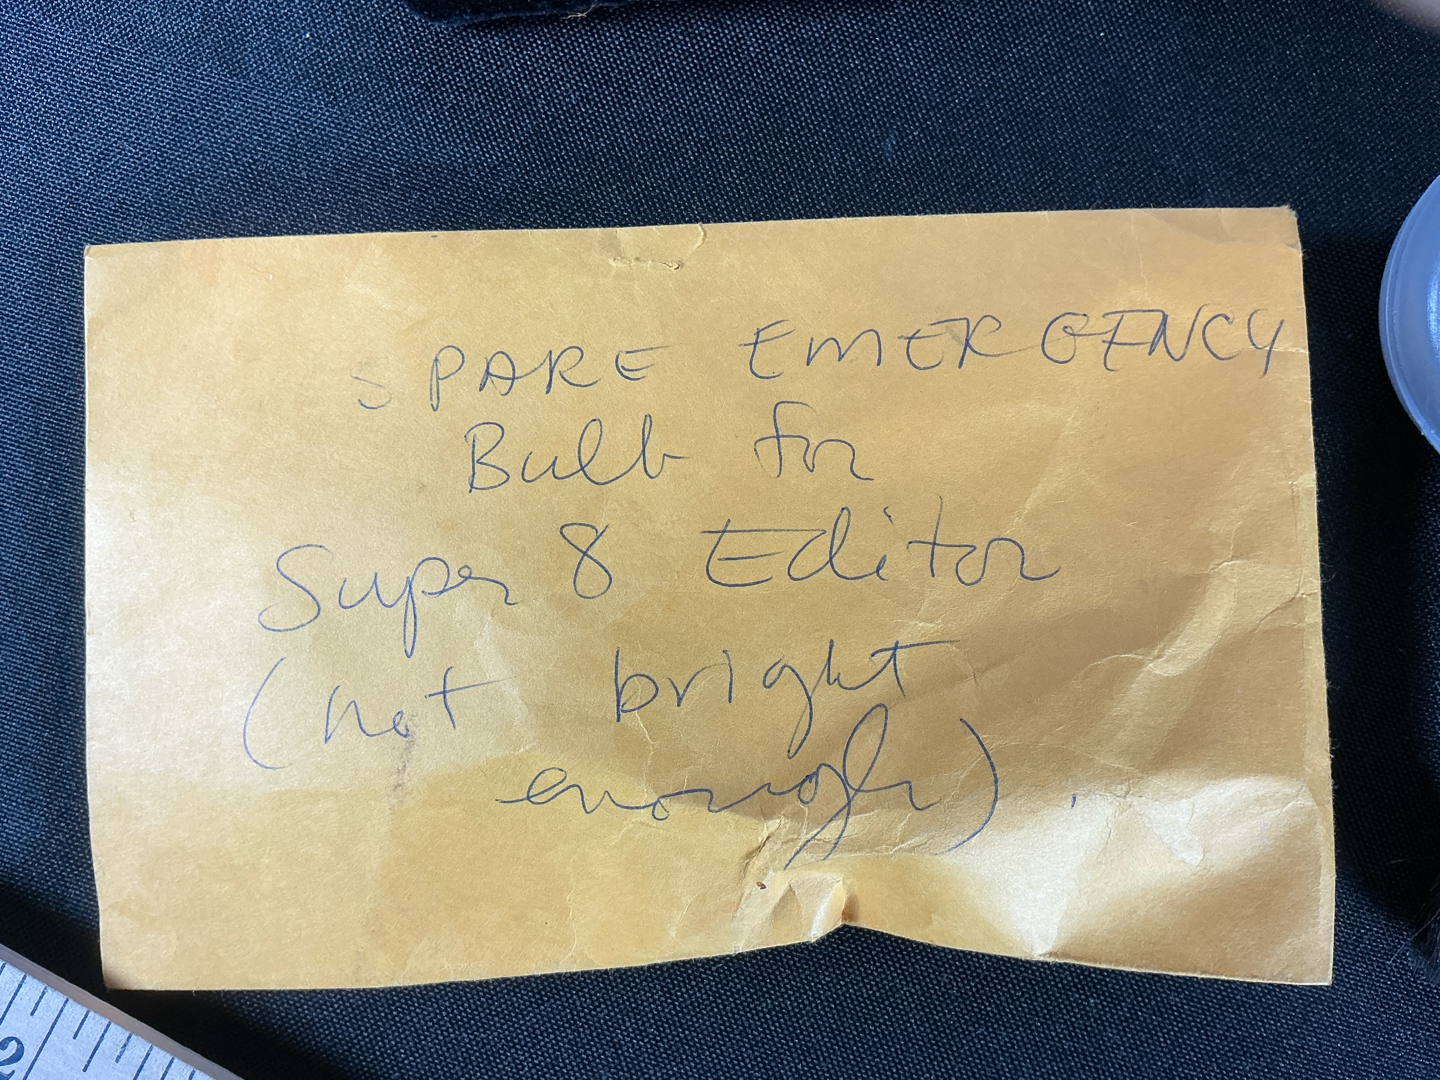 SPARE EMERGENCY
Bulb for
Super 8 Editor
(not bright
enough).
2